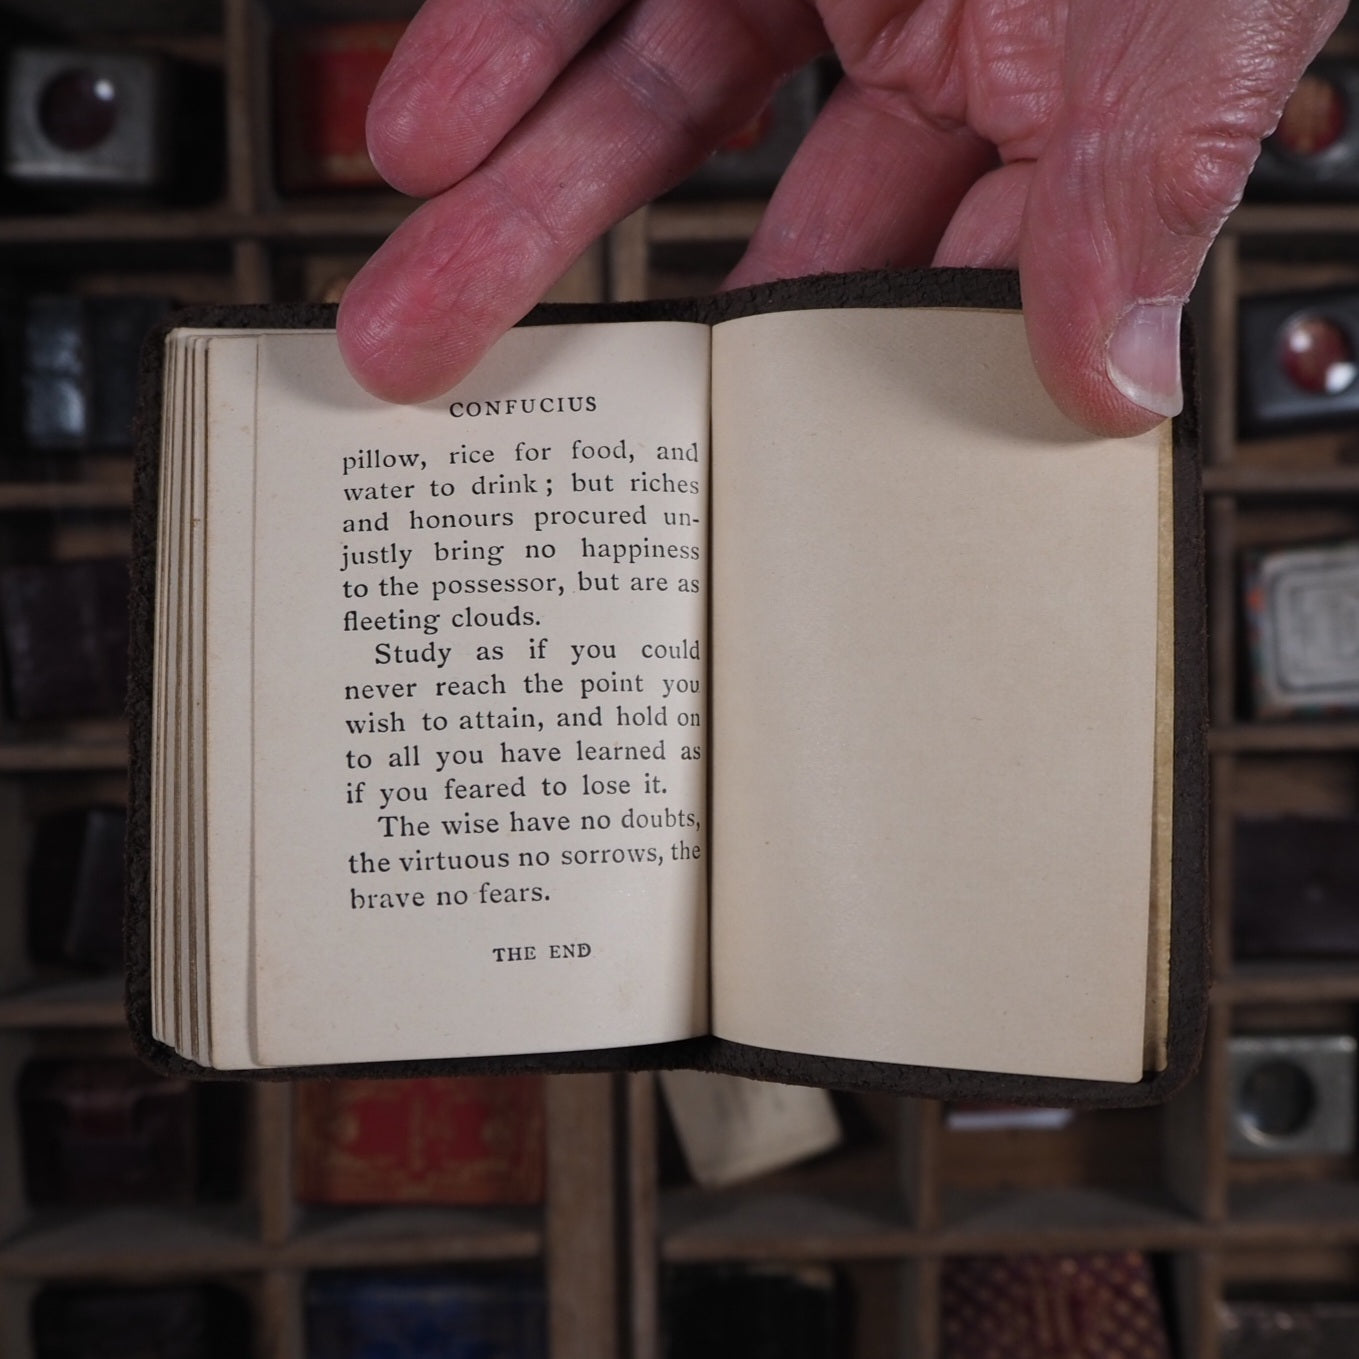 CONFUCIUS
pillow, rice for food, and
water to drink ; but riches
and honours procured un-
justly bring no happiness
to the possessor, but are as
fleeting clouds.
Study as if you could
never reach the point you
wish to attain, and hold on
to all you have learned as
if you feared to lose it.
The wise have no doubts,
the virtuous no sorrows, the
brave no fears.
THE END